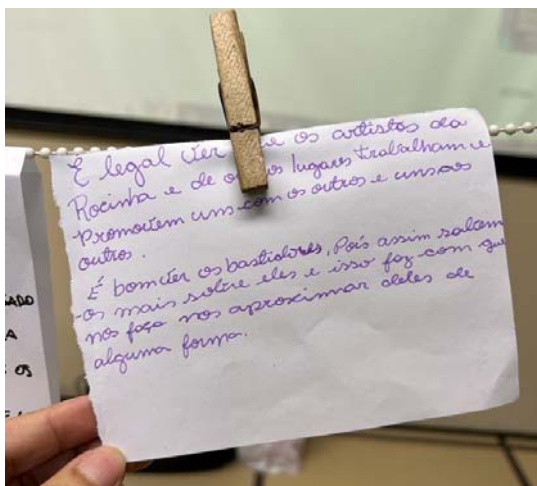 É legal ver e os artistas da
Rocinha e de o os lugares trabalham e
promovem uns com os outros e uns aos
outros.
É bom ver os bastidores, Pois assim sabem
-os mais sobre eles e isso faz com que
nos faça nos aproximar deles de
alguma forma.
ADO
A
OS